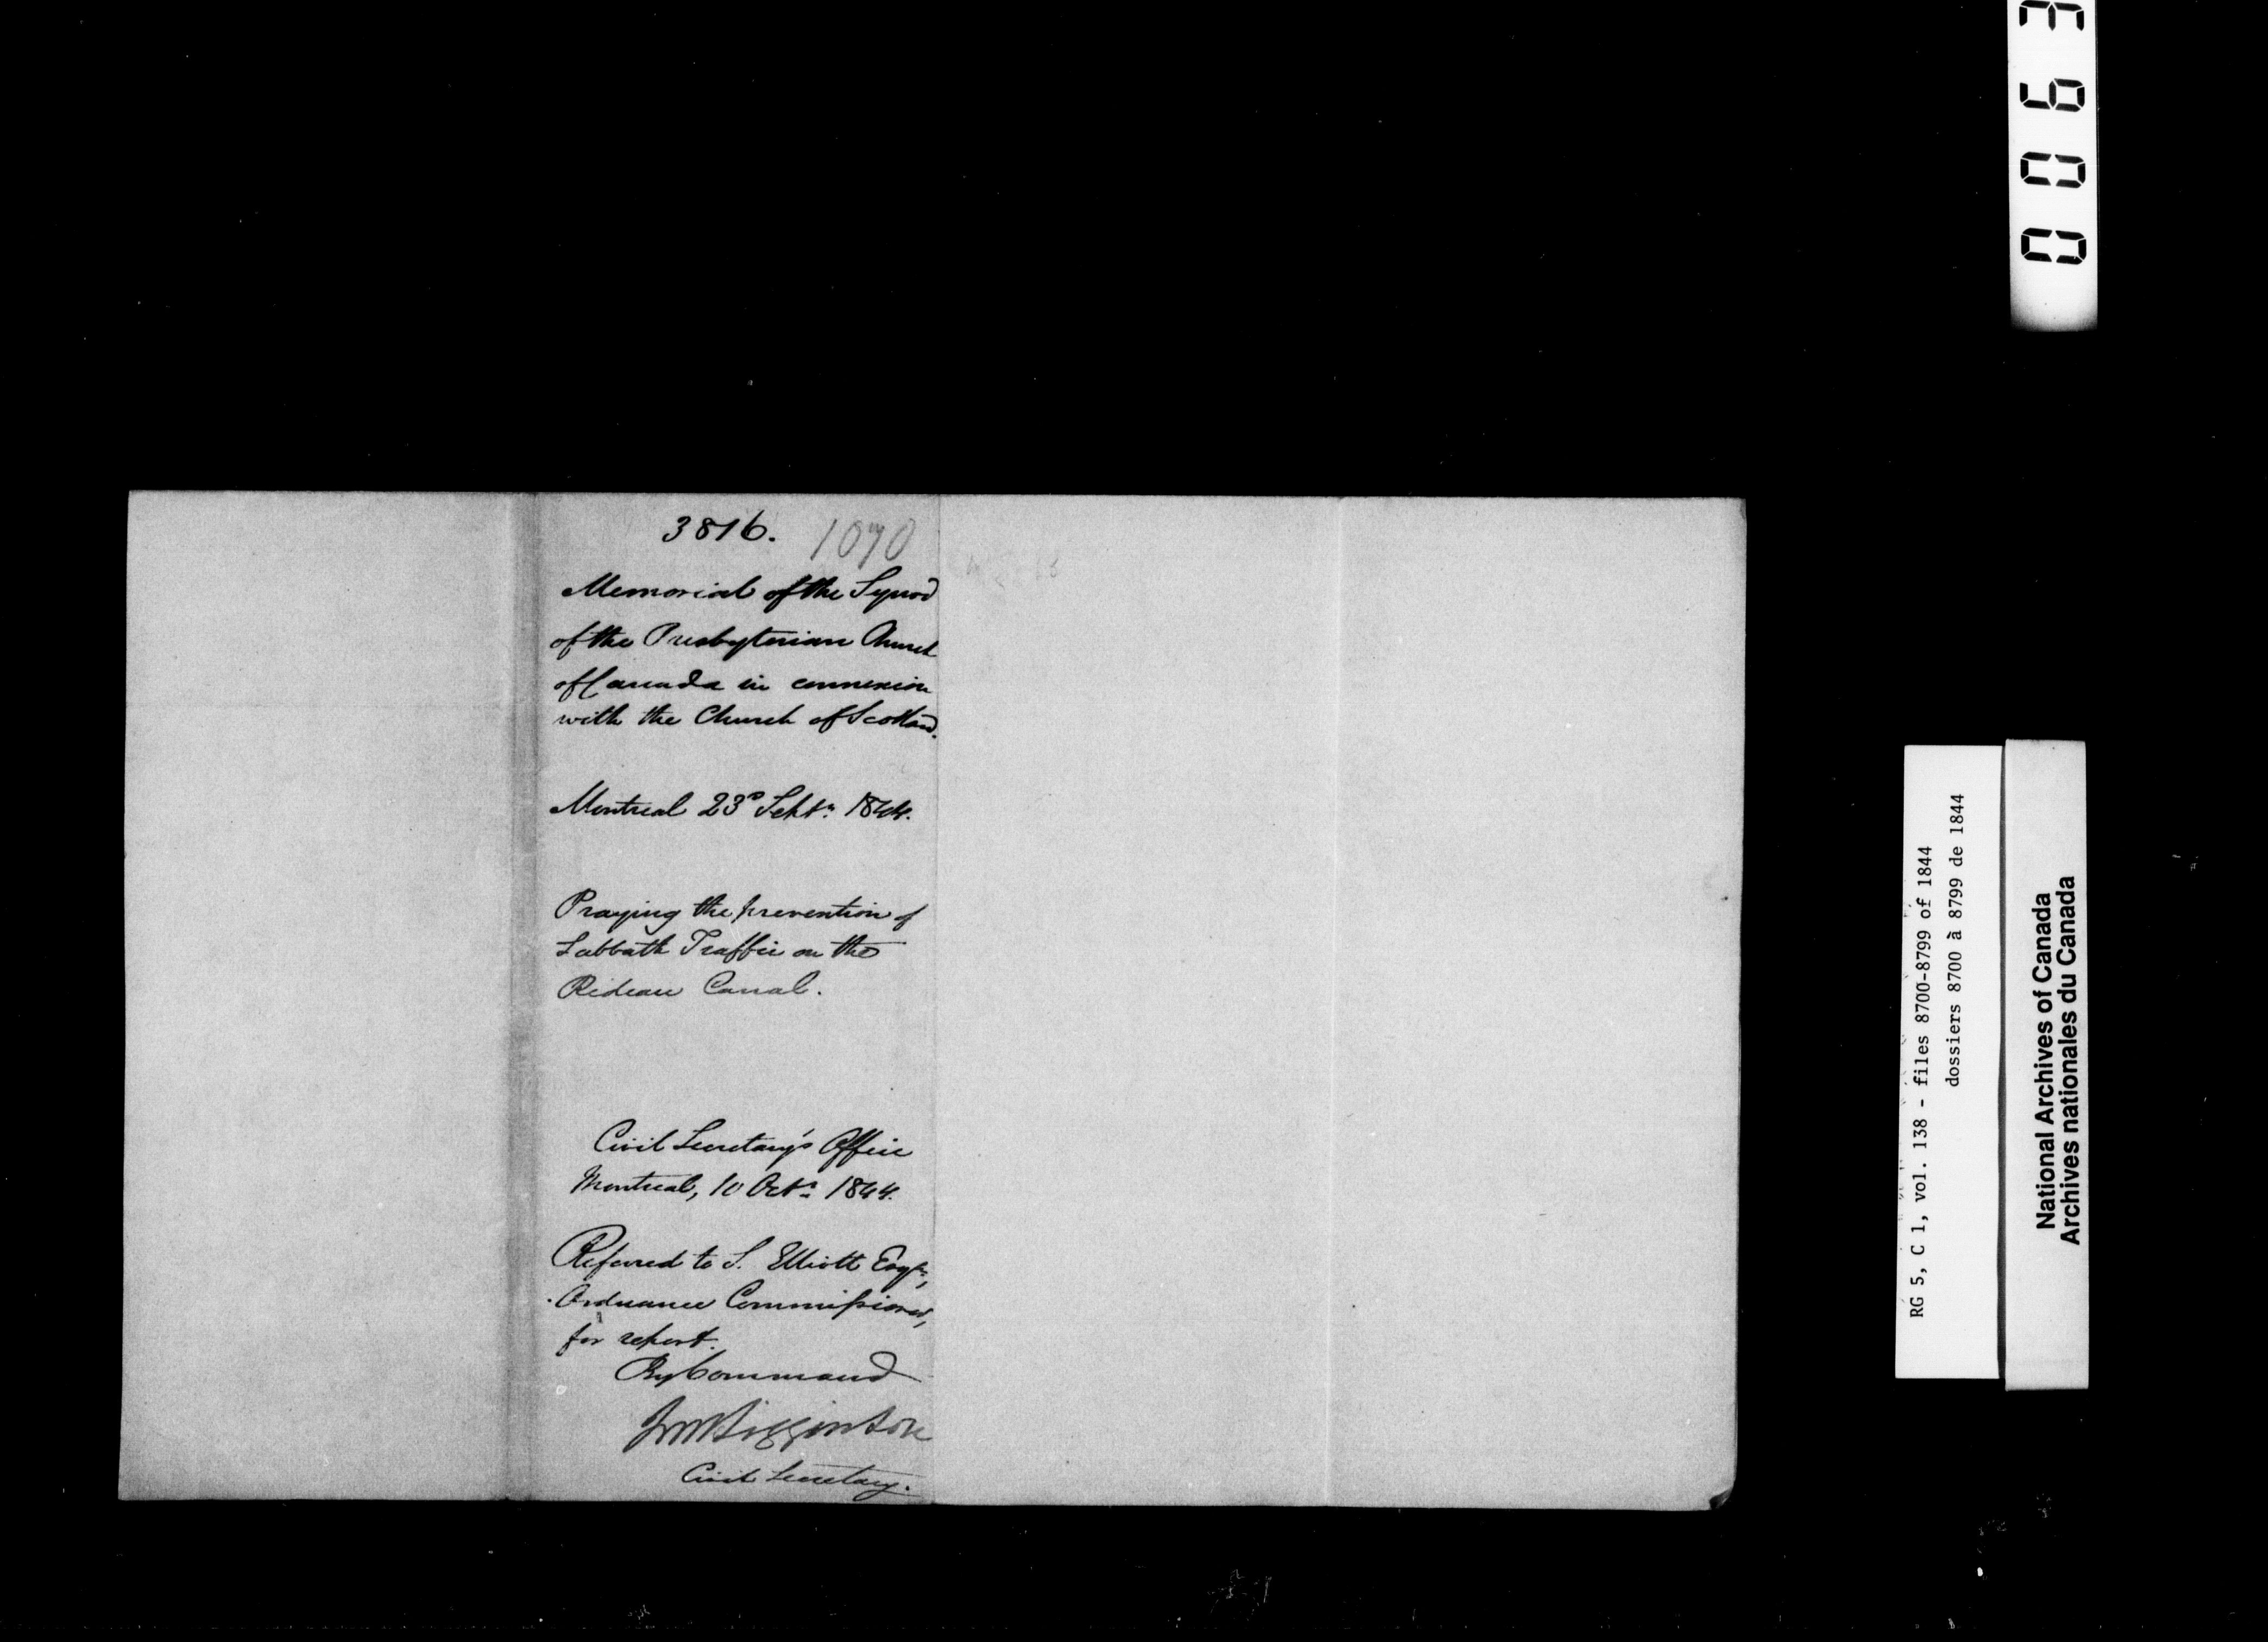 3816. 1070
Memorial of the Synod
of the Presbyterian Church
of Canada in connexion
with the Church of Scotland.
Montreal 23d Septr. 1844.
Praying the prevention of
Sabbath Traffic on the
Rideau Canal.
Civil Secretary's Office
Montreal, 10 Octr. 1844.
Referred to S. Elliott Esqr.,
Ordnance Commissioner,
for report.
By Command
JMHigginson
Civil Secretary.
0063
RG 5, C 1, vol. 138 - files 8700-8799 of 1844
dossiers 8700 à 8799 de 1844
National Archives of Canada
Archives nationales du Canada